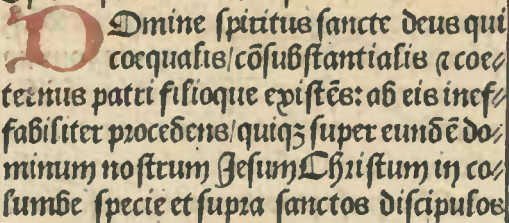 DOmine ſpiritus ſancte deus qui
coequalis/cōſubſtantialis ⁊ coe⸗
ternus patri filioque exiſtēs: ab eis inef⸗
fabiliter procedens/quiqʒ ſuper eundē do⸗
minum noſtrum Jeſum Chriſtum in co⸗
lumbe ſpecie et ſupra ſanctos diſcipulos